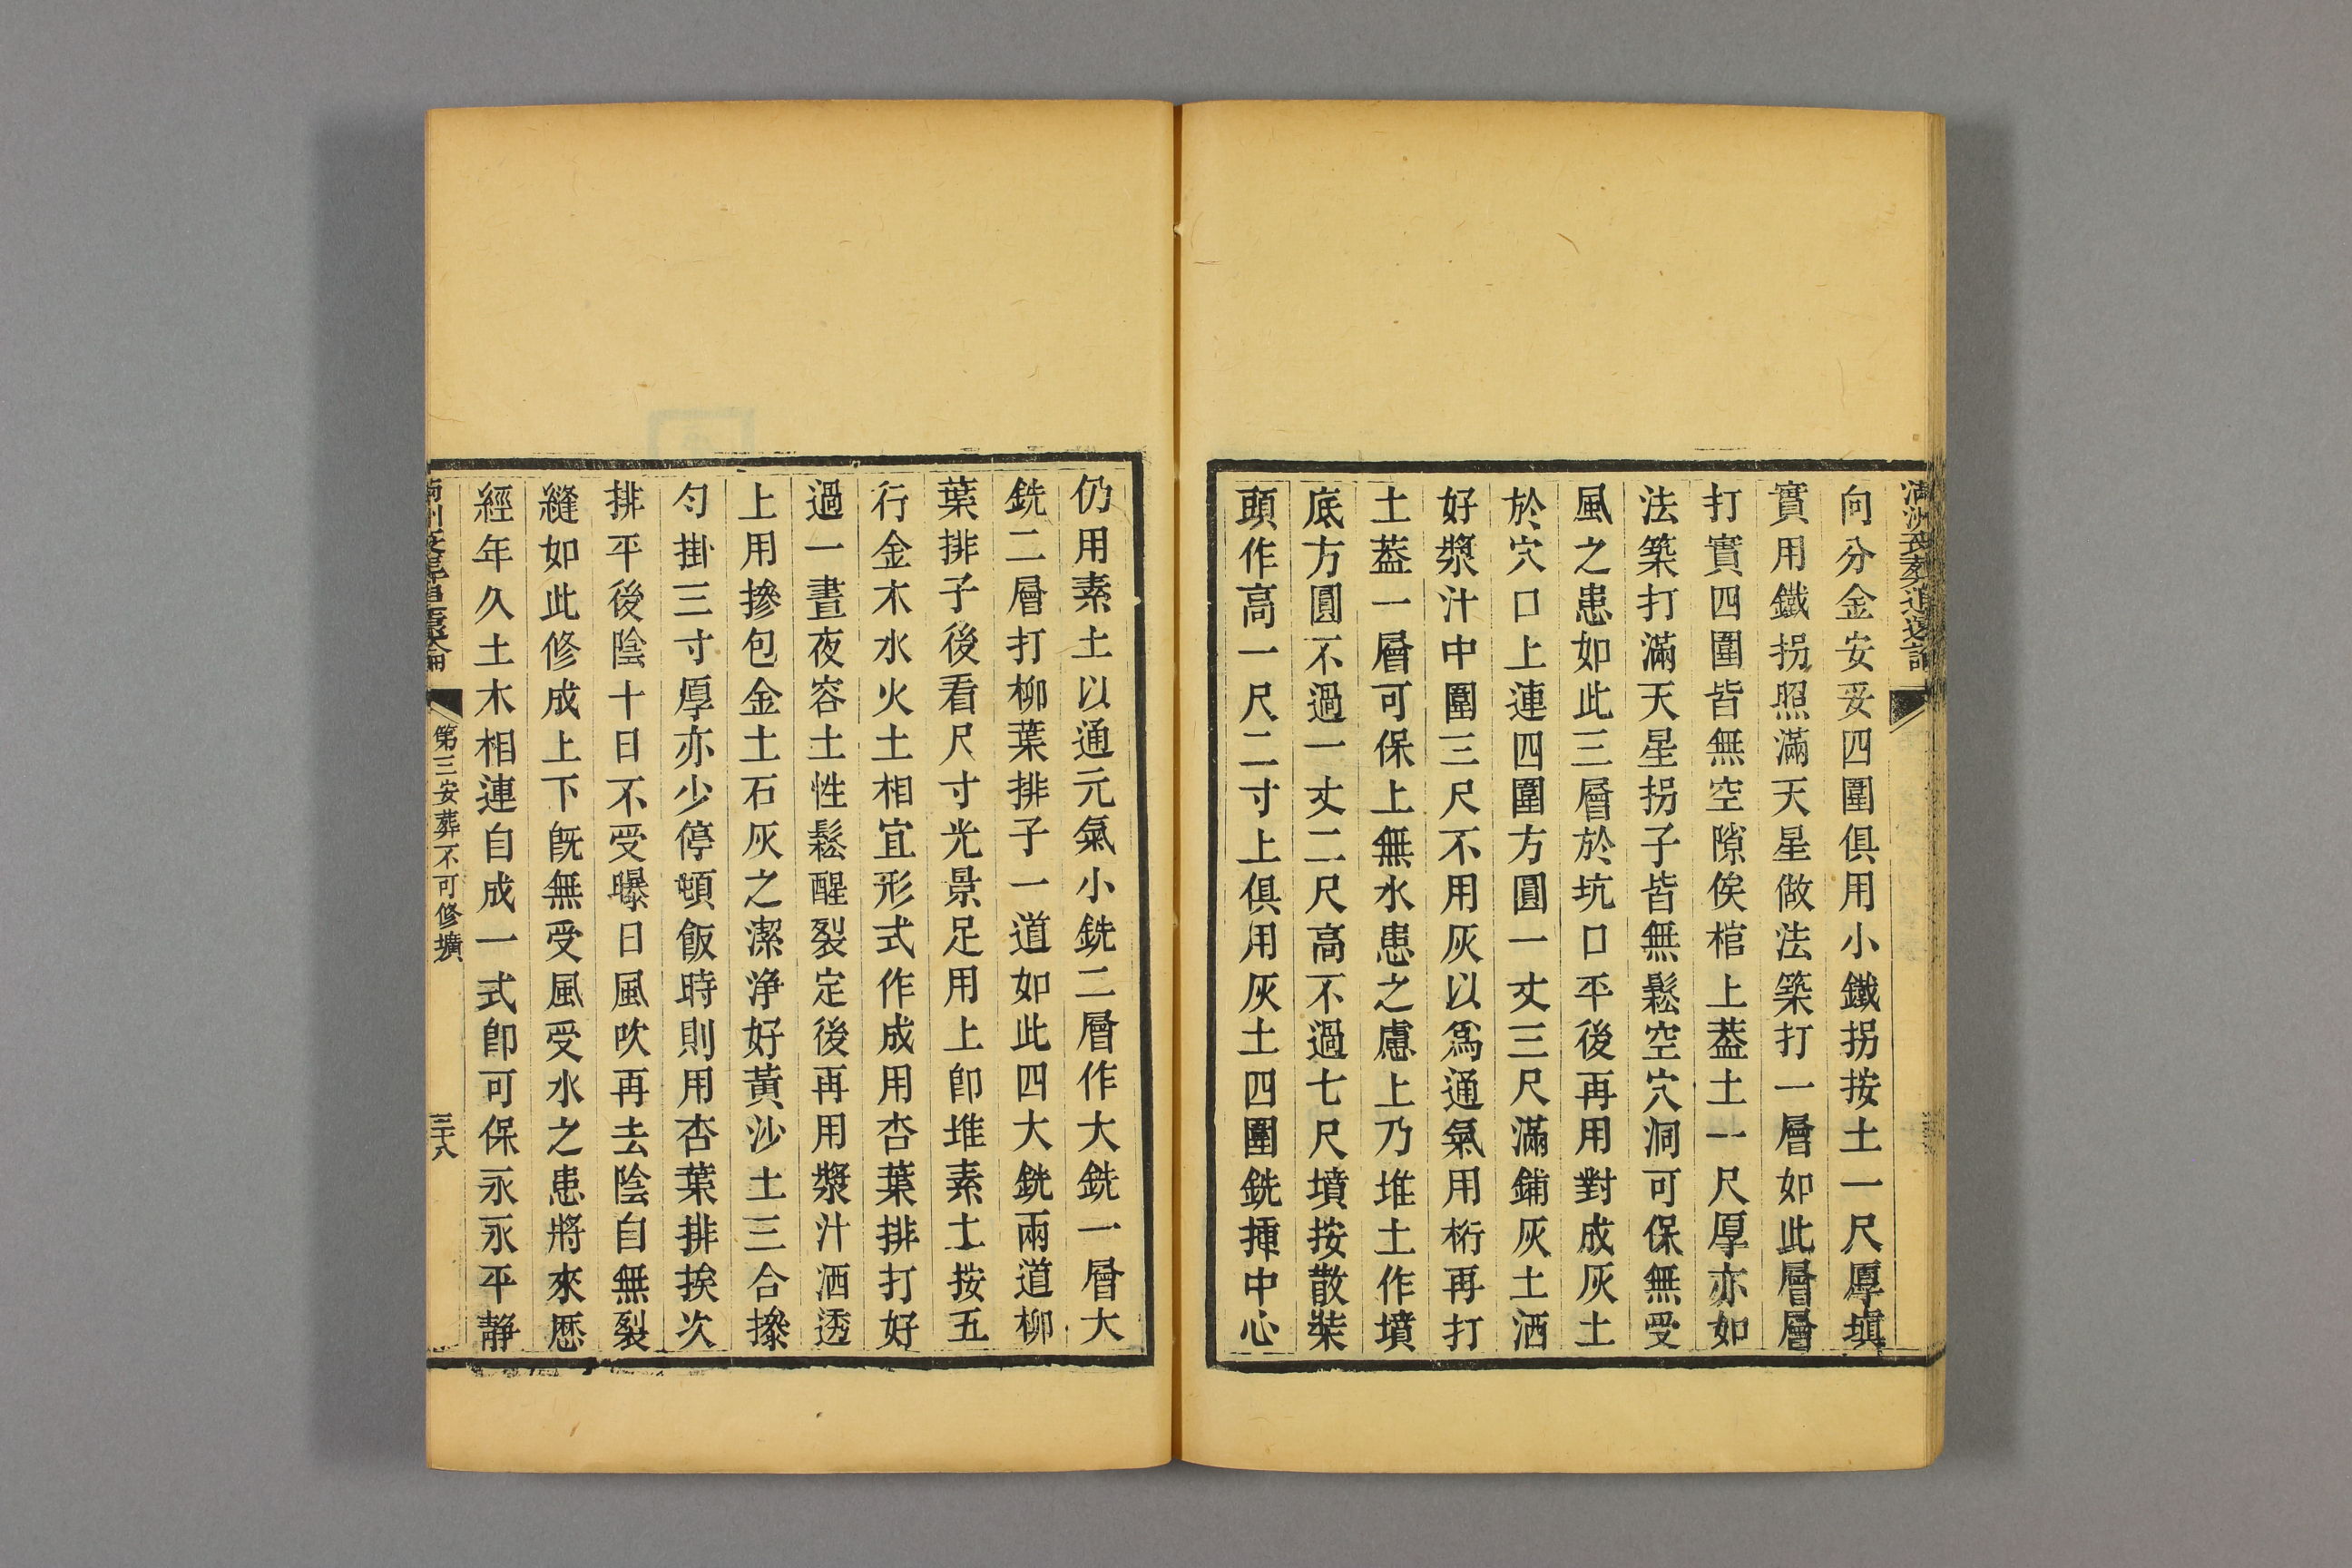 滿洲喪葬追遠論
向分金安妥四圍俱用小鐵拐按土一尺厚塡
實用鐵拐照滿天星做法築打一層如此層層
打實四圍皆無空隙俟棺上葢土一尺厚亦如
法築打滿天星拐子皆無鬆空穴洞可保無受
風之患如此三層於坑口平後再用對成灰土
於穴口上連四圍方圓一丈三尺滿鋪灰土洒
好漿汁中圍三尺不用灰以爲通氣用桁再打
土葢一層可保上無水患之慮上乃堆土作墳
底方圓不過一丈二尺高不過七尺墳按散裝
頭作高一尺二寸上俱用灰土四圍銑揷中心
仍用素土以通元氣小銑二層作大銑一層大
銑二層打柳葉排子一道如此四大銑兩道柳
葉排子後看尺寸光景足用上卽堆素土按五
行金木水火土相宜形式作成用杏葉排打好
過一晝夜容土性鬆醒裂定後再用漿汁洒透
上用摻包金土石灰之潔淨好黃沙土三合摻
勻掛三寸厚亦少停頓飯時則用杏葉排挨次
排平後陰十日不受曝日風吹再去陰自無裂
縫如此修成上下旣無受風受水之患將來歷
經年久土木相連自成一式卽可保永永平靜
滿洲喪葬追遠論
第三安葬不可修壙
三十八